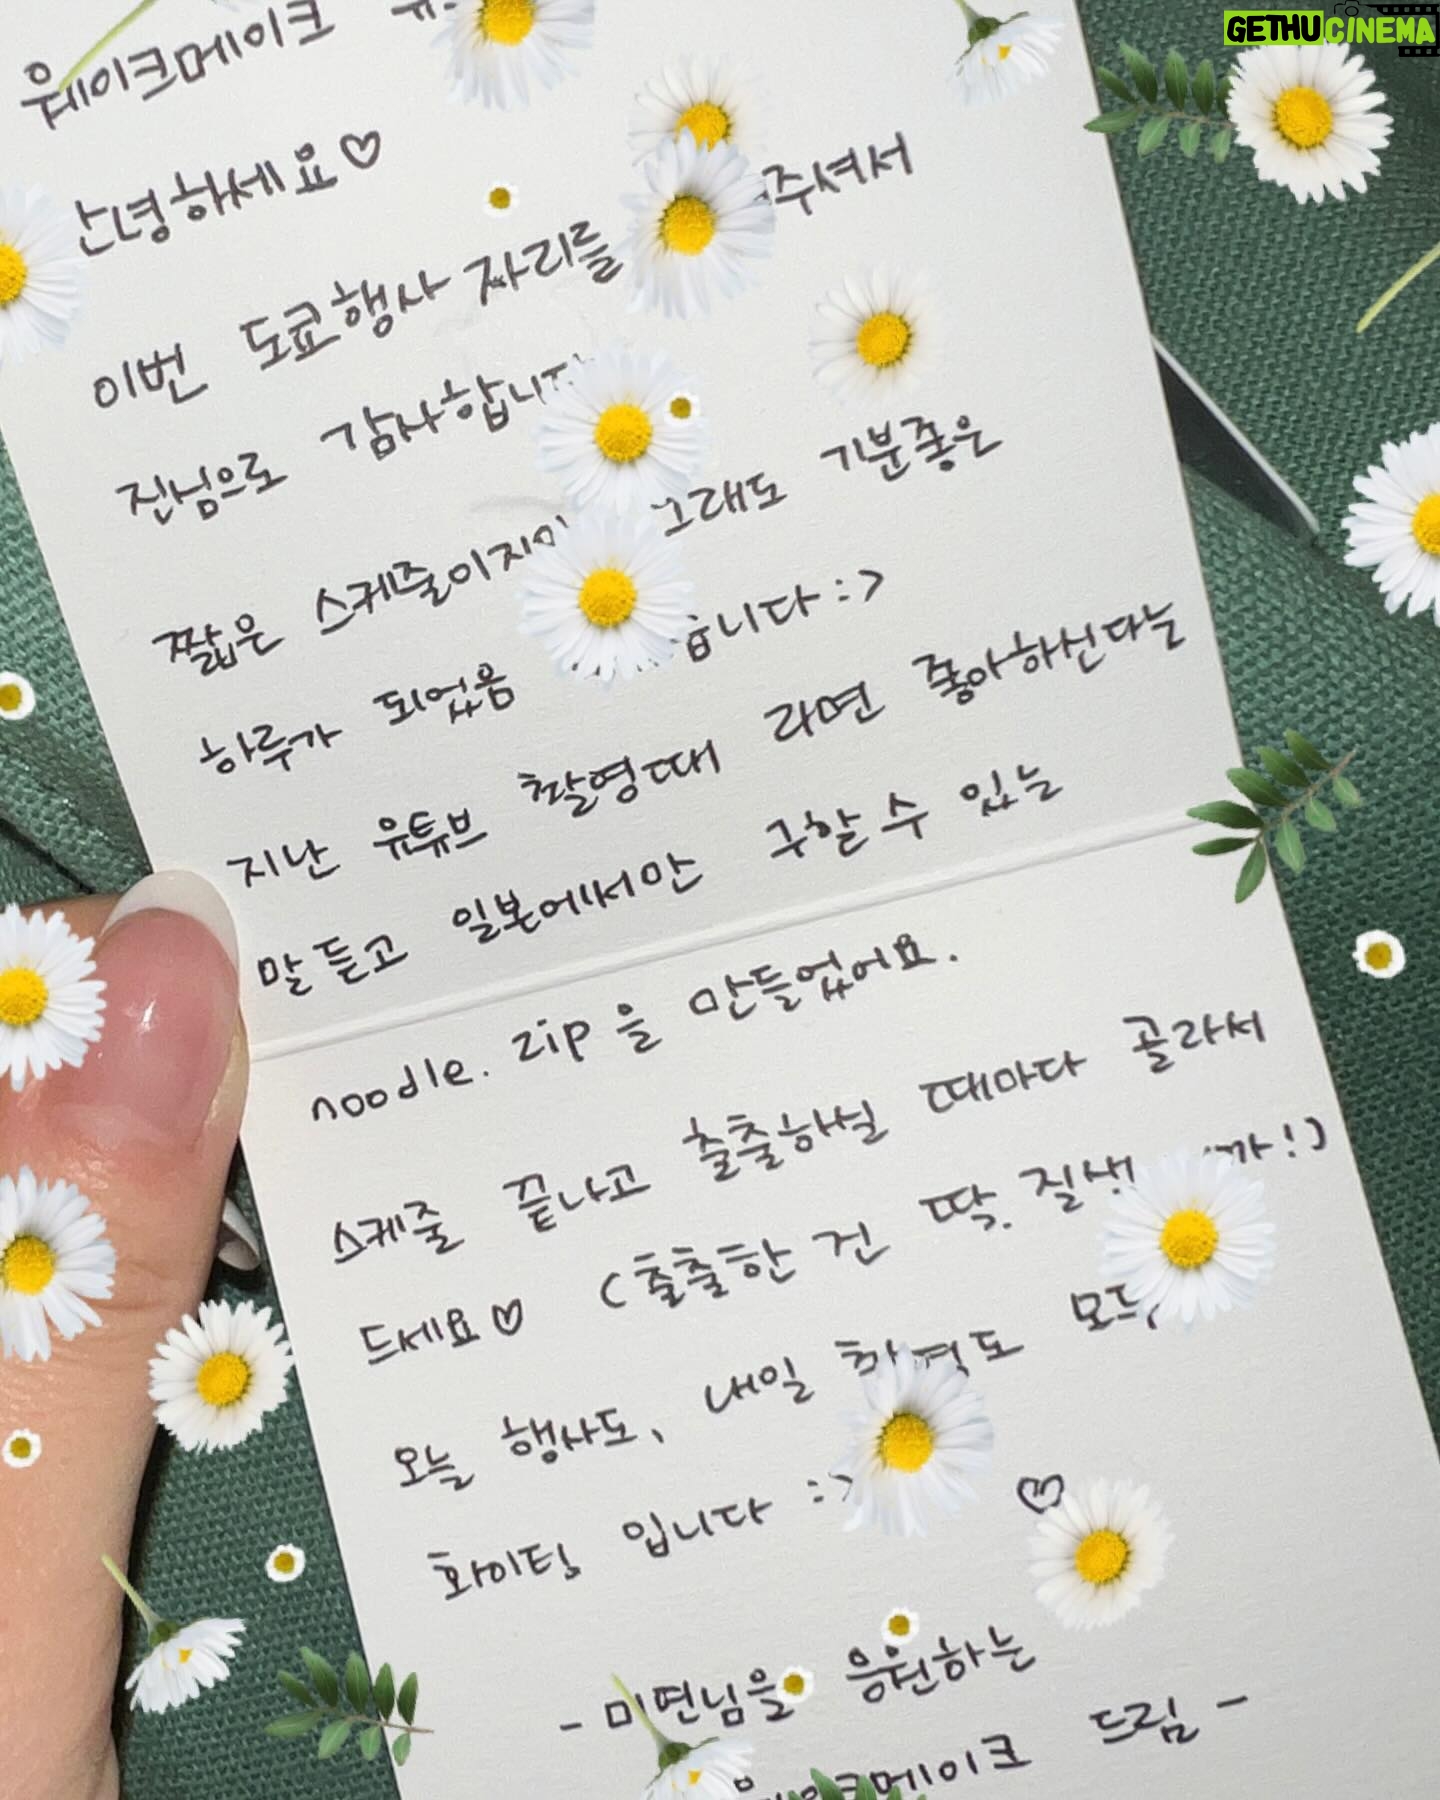 GETHUCINEMA
웨이크메이크
안녕하세요♡
이번 도쿄행사 자리를 주셔서
진심으로 감사합니다
짧은 스케줄이지만 노래도 기분좋은
하루가 되었음 습니다 :>
지난 유튜브 촬영때 라면 좋아하신다는
말 듣고 일본에서만 구할 수 있는
noodle. zip 을 만들었어요.
스케줄 끝나고 출출하실 때마다 골라서
드세요♡ (출출한 건 딱. 질색 까!)
오늘 행사도, 내일 도 모두,
화이팅 입니다 :> ♡
- 미연님을 응원하는
웨이크메이크 드림 -